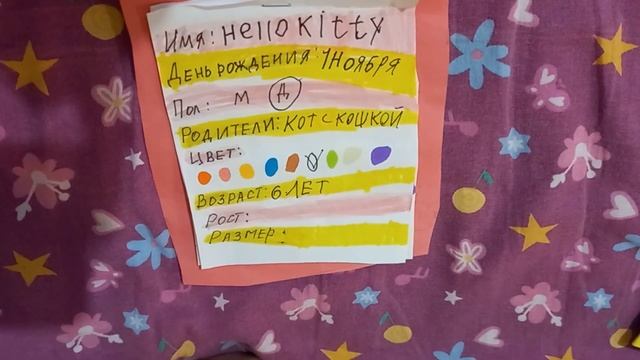 Имя: Hello Kitty
День рождения: 1 ноября
Пол: м д
Родители: кот с кошкой
Цвет:
Возраст: 6 лет
Рост:
Размер: